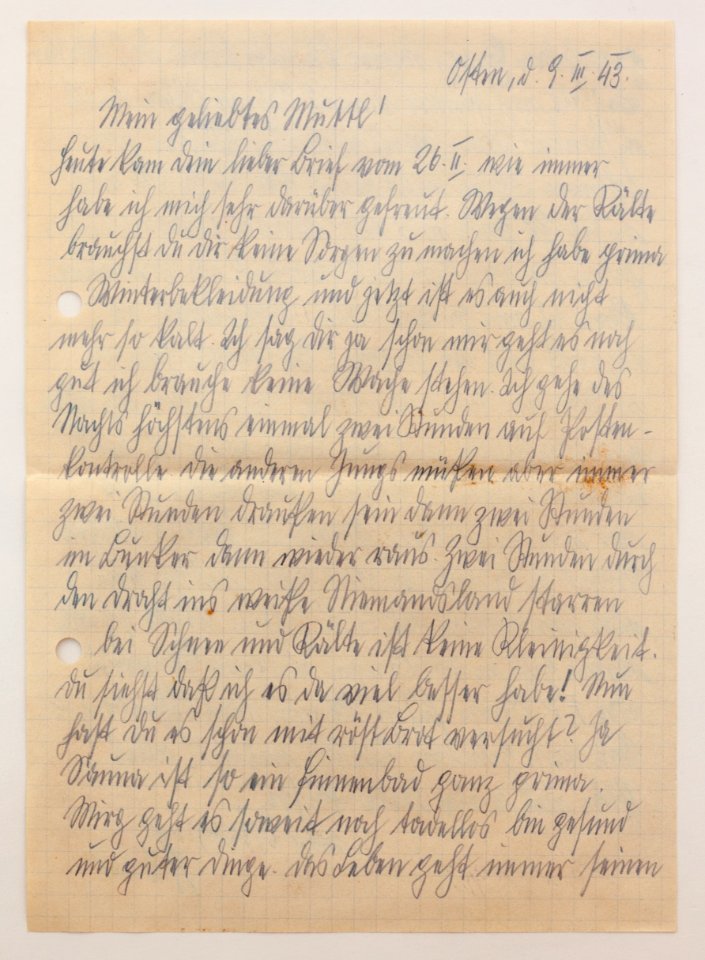 Osten, d. 9. III. 43.
Mein geliebtes Muttl!
heute kam dein lieber Brief vom 26. II. wie immer
habe ich mich sehr darüber gefreut. Wegen der Kälte
brauchst du dir keine Sorgen zu machen ich habe prima
Winterbekleidung und jetzt ist es auch nicht
mehr so kalt. Ich sag dir ja schon mir geht es noch
gut ich brauche keine Wache stehen. Ich gehe des
Nachts höchstens einmal zwei Stunden auf Posten-
kontrolle die anderen Jungs müßen aber immer
zwei Stunden draußen sein dann zwei Stunden
im Bunker dann wieder raus. Zwei Stunden durch
den draht ins weiße Niemandsland starren
bei Schnee und Kälte ist keine Kleinigkeit.
du siehst daß ich es da viel besser habe! Nun
hast du es schon mit röst Brot versucht? Ja
Sauna ist so ein finnenbad ganz prima.
Mir geht es soweit noch tadellos bin gesund
und guter dinge. das Leben geht immer seinen